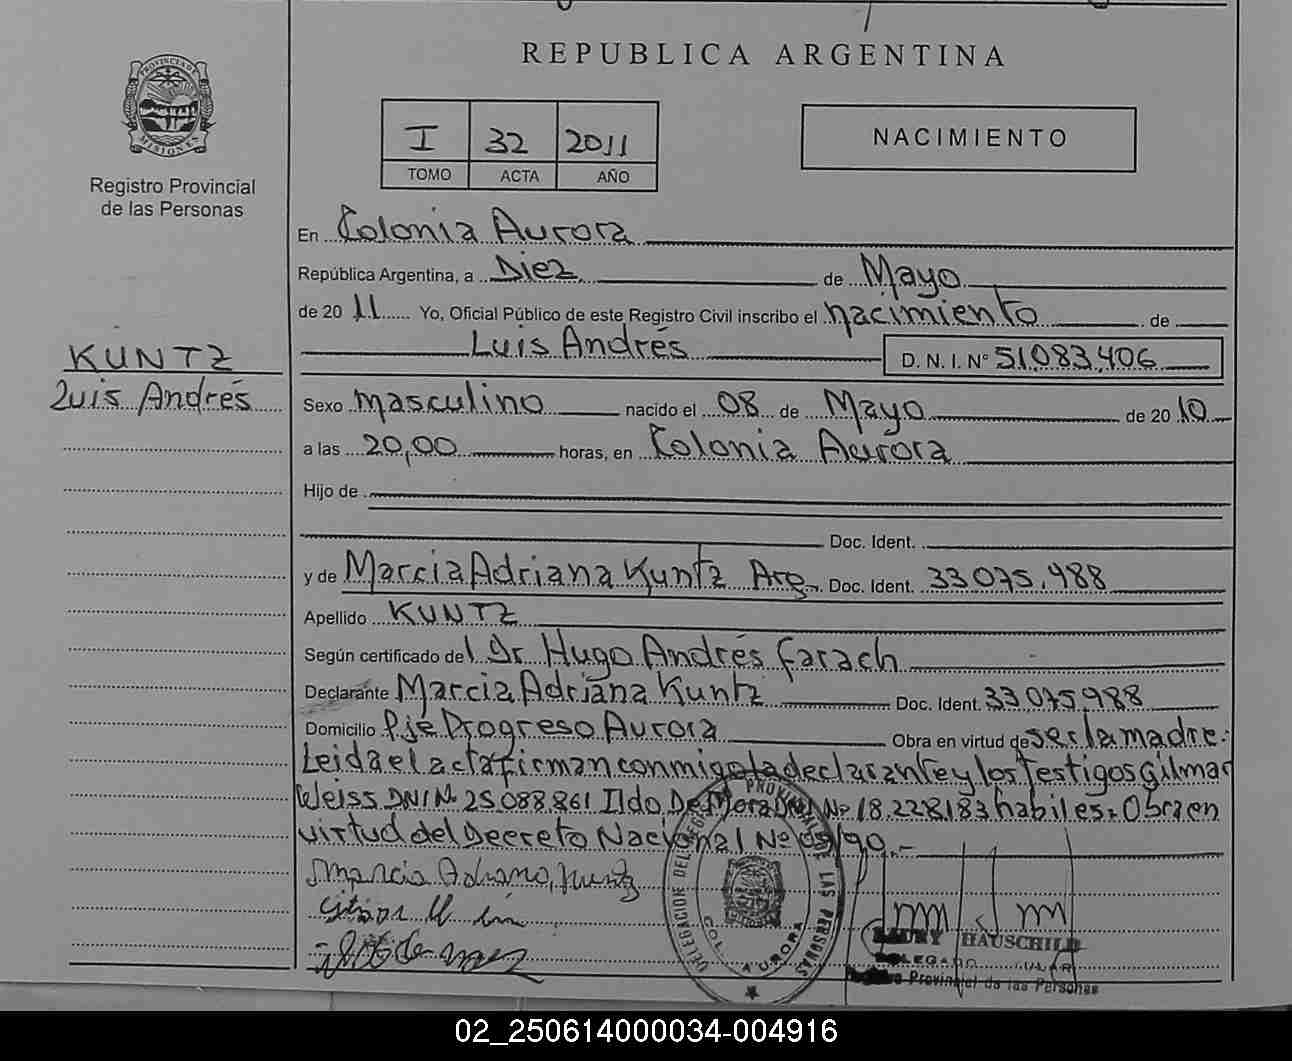 REPUBLICA ARGENTINA
PROVINCIA DE MISIONES
Registro Provincial
de las Personas
I 32 2011
TOMO ACTA AÑO
NACIMIENTO
En Colonia Aurora
República Argentina, a Diez de Mayo
de 20 11 Yo, Oficial Público de este Registro Civil inscribo el nacimiento de
Luis Andrés D. N. I. Nº 51.083.406
KUNTZ
Luis Andrés
Sexo masculino nacido el 08 de Mayo de 20 10
a las 20,00 horas, en Colonia Aurora
Hijo de
Doc. Ident.
y de Marcia Adriana Kuntz Arg. Doc. Ident. 33.075.988
Apellido KUNTZ
Según certificado del Dr Hugo Andrés Farach
Declarante Marcia Adriana Kuntz Doc. Ident. 33.075.988
Domicilio Pje Progreso Aurora Obra en virtud de ser la madre.
Leida el acta firman conmigo la declarante y los testigos Gilmar
Weiss DNI Nº 25.088.861 Ildo De Mora DNI Nº 18.228.183 habiles. Obra en
virtud del Decreto Nacional Nº 09/90.-
Marcia Adriana Kuntz
DELEGACION DEL REGISTRO PROVINCIAL DE LAS PERSONAS
COL. AURORA
HAUSCHILD
Provincial de las Personas
02_250614000034-004916